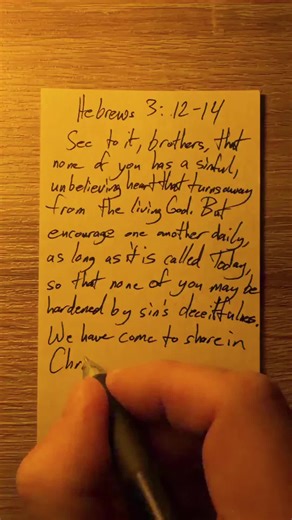 Hebrews 3:12-14
See to it, brothers, that
none of you has a sinful,
unbelieving heart that turns away
from the living God. But
encourage one another daily,
as long as it is called Today,
so that none of you may be
hardened by sin's deceitfulness.
We have come to share in
Chr